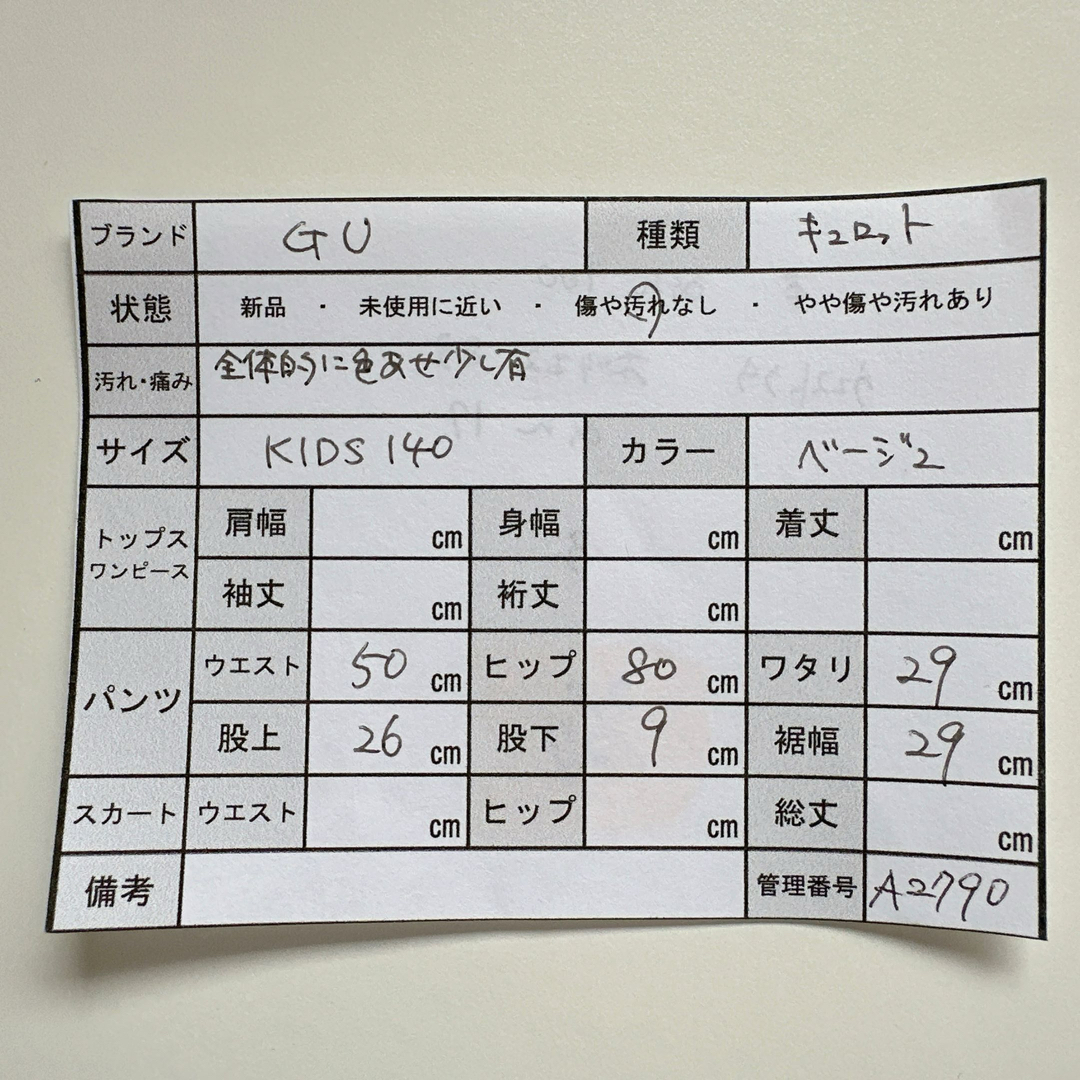 ブランド GU 種類 キュロット
状態 新品 ・ 未使用に近い ・ 傷や汚れなし ・ やや傷や汚れあり
汚れ・痛み 全体的に色あせ少し有
サイズ KIDS 140 カラー ベージュ
トップス ワンピース 肩幅 cm 身幅 cm 着丈 cm
袖丈 cm 裄丈 cm
パンツ ウエスト 50 cm ヒップ 80 cm ワタリ 29 cm
股上 26 cm 股下 9 cm 裾幅 29 cm
スカート ウエスト cm ヒップ cm 総丈 cm
備考 管理番号 A2790